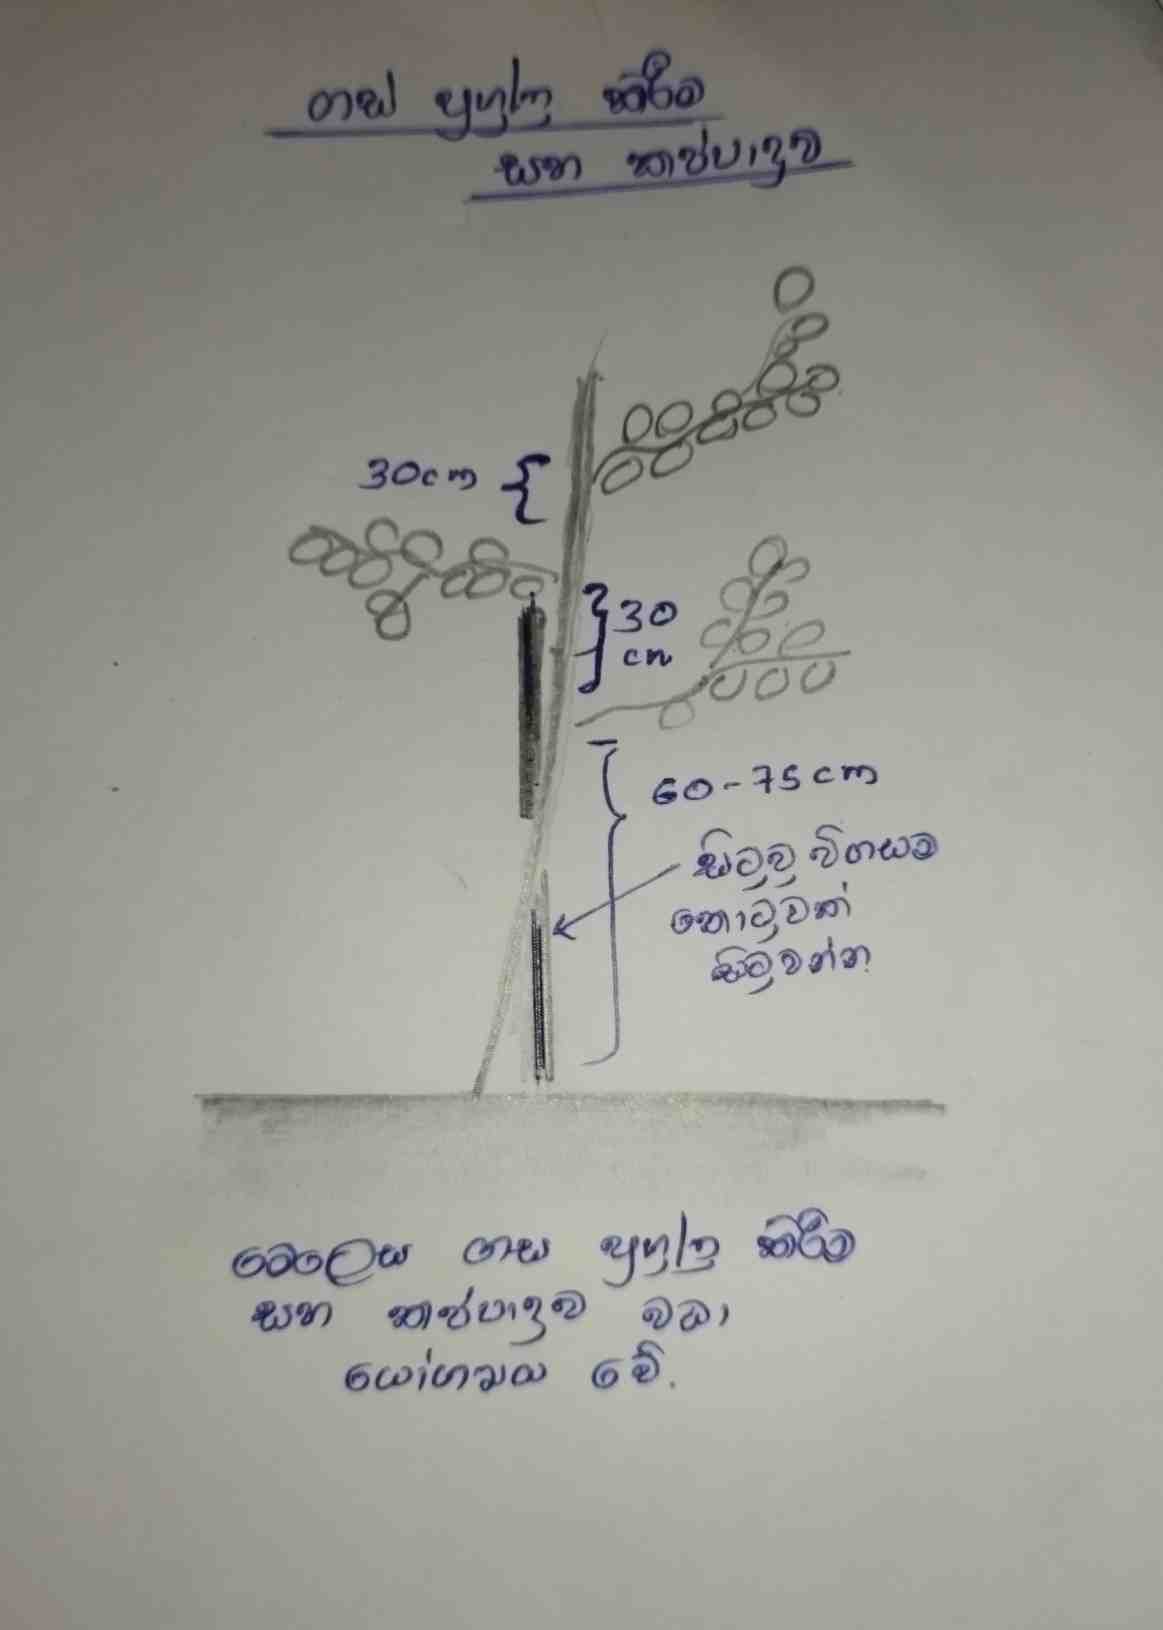 ගස් පුහුණු කිරීම
සහ කප්පාදුව
30cm
30
cm
60-75cm
සිටුවූ විගසම
කොටුවක්
සිටුවන්න.
මෙලෙස ගස පුහුණු කිරීම
සහ කප්පාදුව වඩා
යෝග්‍ය වේ.